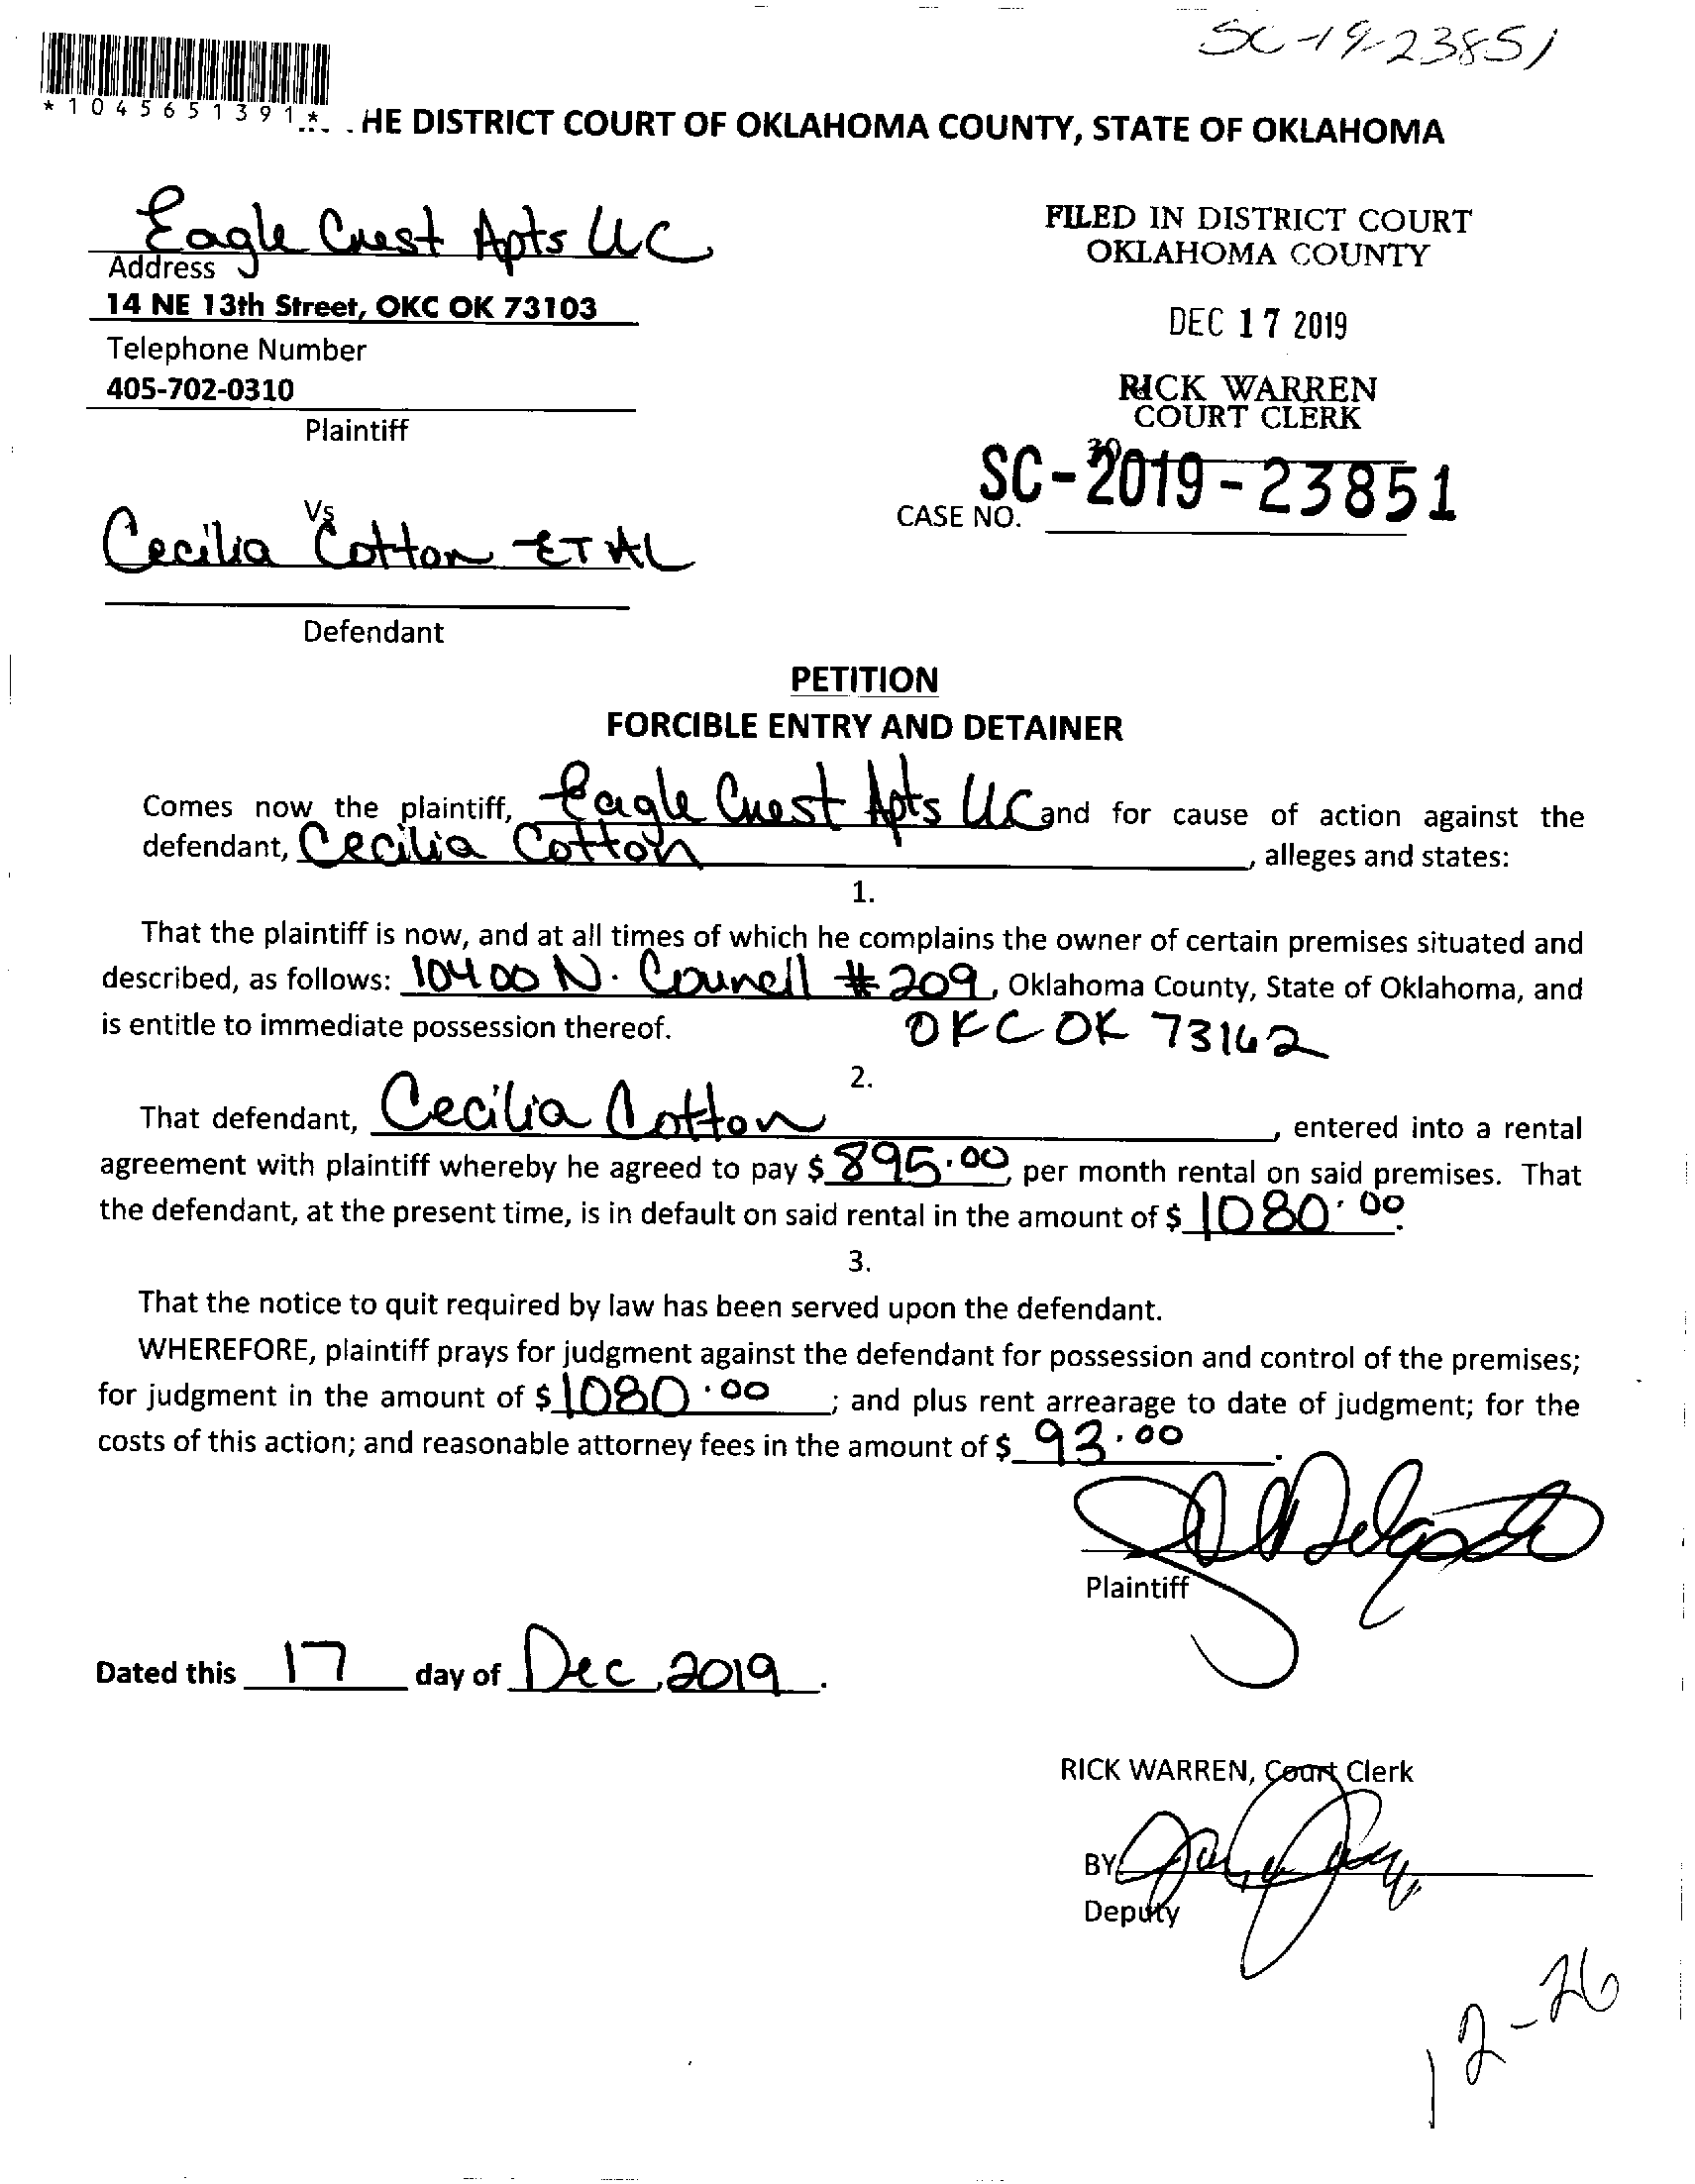 SC-19-23851
*1045651391*
HE DISTRICT COURT OF OKLAHOMA COUNTY, STATE OF OKLAHOMA
Eagle Crest Apts LLC
Address
14 NE 13th Street, OKC OK 73103
Telephone Number
405-702-0310
Plaintiff
FILED IN DISTRICT COURT
OKLAHOMA COUNTY
DEC 17 2019
RICK WARREN
COURT CLERK
39
SC-2019-23851
CASE NO.
Vs
Cecilia Cotton ET AL
Defendant
PETITION
FORCIBLE ENTRY AND DETAINER
Comes now the plaintiff, Eagle Crest Apts LLC and for cause of action against the
defendant, Cecilia Cotton, alleges and states:
1.
That the plaintiff is now, and at all times of which he complains the owner of certain premises situated and
described, as follows: 10400 N. Council #209, Oklahoma County, State of Oklahoma, and
is entitle to immediate possession thereof. OKC OK 73162
2.
That defendant, Cecilia Cotton, entered into a rental
agreement with plaintiff whereby he agreed to pay $ 895.00, per month rental on said premises. That
the defendant, at the present time, is in default on said rental in the amount of $ 1080.00.
3.
That the notice to quit required by law has been served upon the defendant.
WHEREFORE, plaintiff prays for judgment against the defendant for possession and control of the premises;
for judgment in the amount of $ 1080.00; and plus rent arrearage to date of judgment; for the
costs of this action; and reasonable attorney fees in the amount of $ 93.00.
Plaintiff
Dated this 17 day of Dec, 2019.
RICK WARREN, Court Clerk
BY
Deputy
12-26